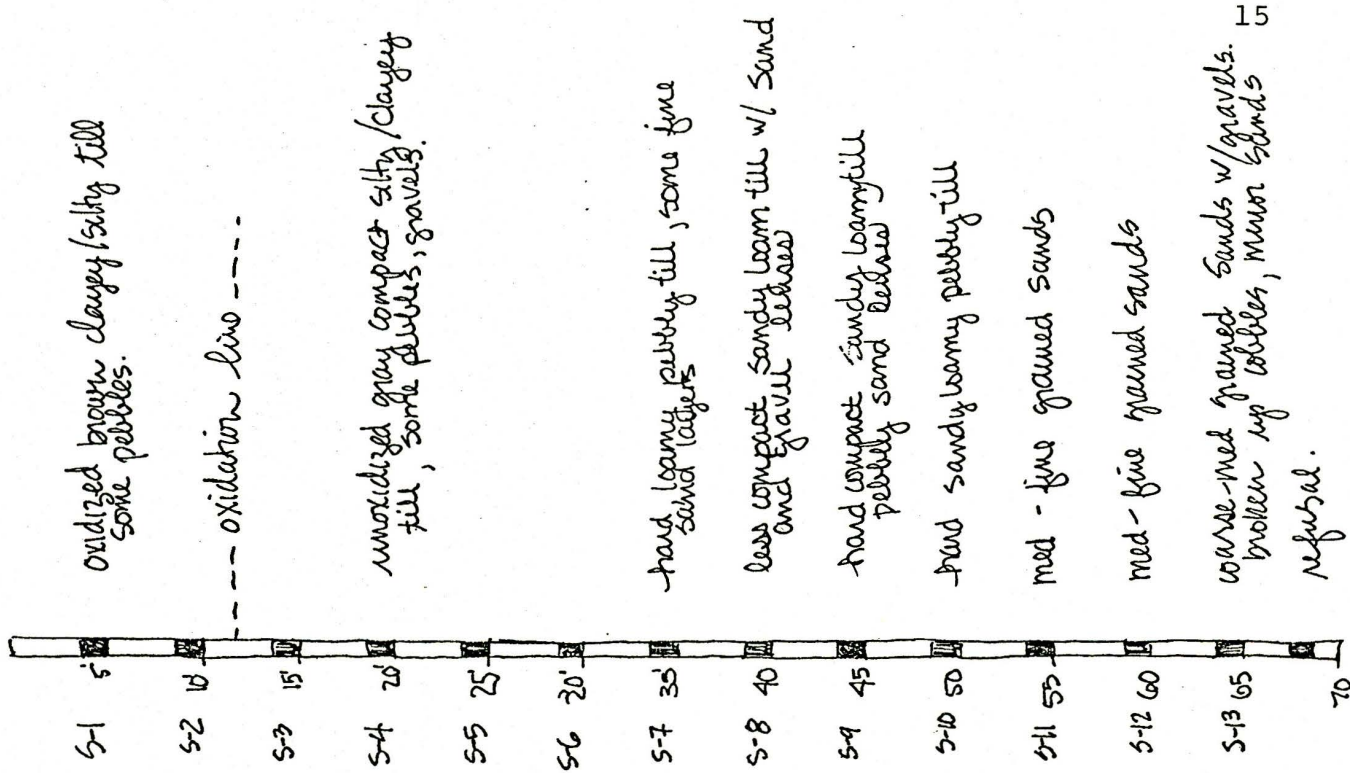 15
S-1 5' oxidized brown clayey/silty till
some pebbles.
S-2 10'
---- oxidation line ----
S-3 15'
S-4 20' unoxidized gray compact silty/clayey
till, some pebbles, gravels.
S-5 25'
S-6 20'
S-7 35' hard, loamy pebbly till, some fine
sand layers
S-8 40 less compact sandy loam till w/ sand
and gravel lenses
S-9 45 hard compact sandy loamy till
pebbly sand lenses
S-10 50 hard sandy loamy pebbly till
S-11 55 med - fine grained sands
S-12 60 med - fine grained sands
S-13 65 coarse-med grained sands w/gravels.
broken up cobbles, minor sands
refusal.
70